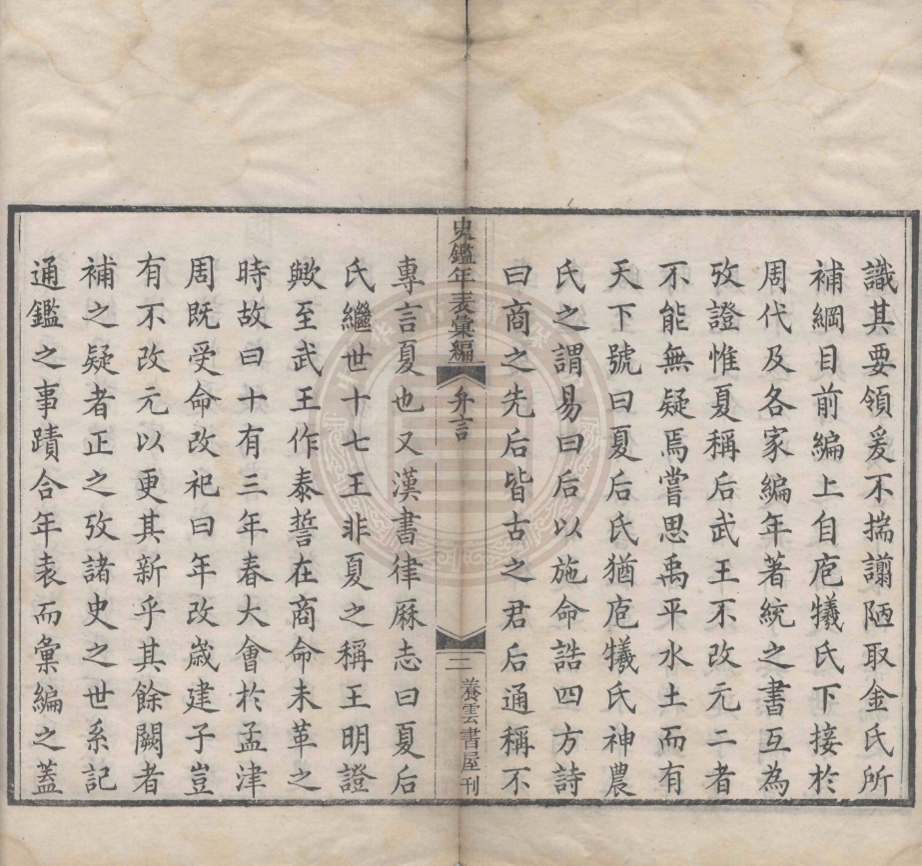 識其要領爰不揣譾陋取金氏所
補綱目前編上自庖犧氏下接於
周代及各家編年著統之書互為
攷證惟夏稱后武王不改元二者
不能無疑焉嘗思禹平水土而有
天下號曰夏后氏猶庖犧氏神農
氏之謂易曰后以施命誥四方詩
曰商之先后皆古之君后通稱不
史鑑年表彙編
弁言
二
養雲書屋刊
專言夏也又漢書律厤志曰夏后
氏繼世十七王非夏之稱王明證
歟至武王作泰誓在商命未革之
時故曰十有三年春大會於孟津
周既受命改祀曰年改歲建子豈
有不改元以更其新乎其餘闕者
補之疑者正之攷諸史之世系記
通鑑之事蹟合年表而彙編之蓋